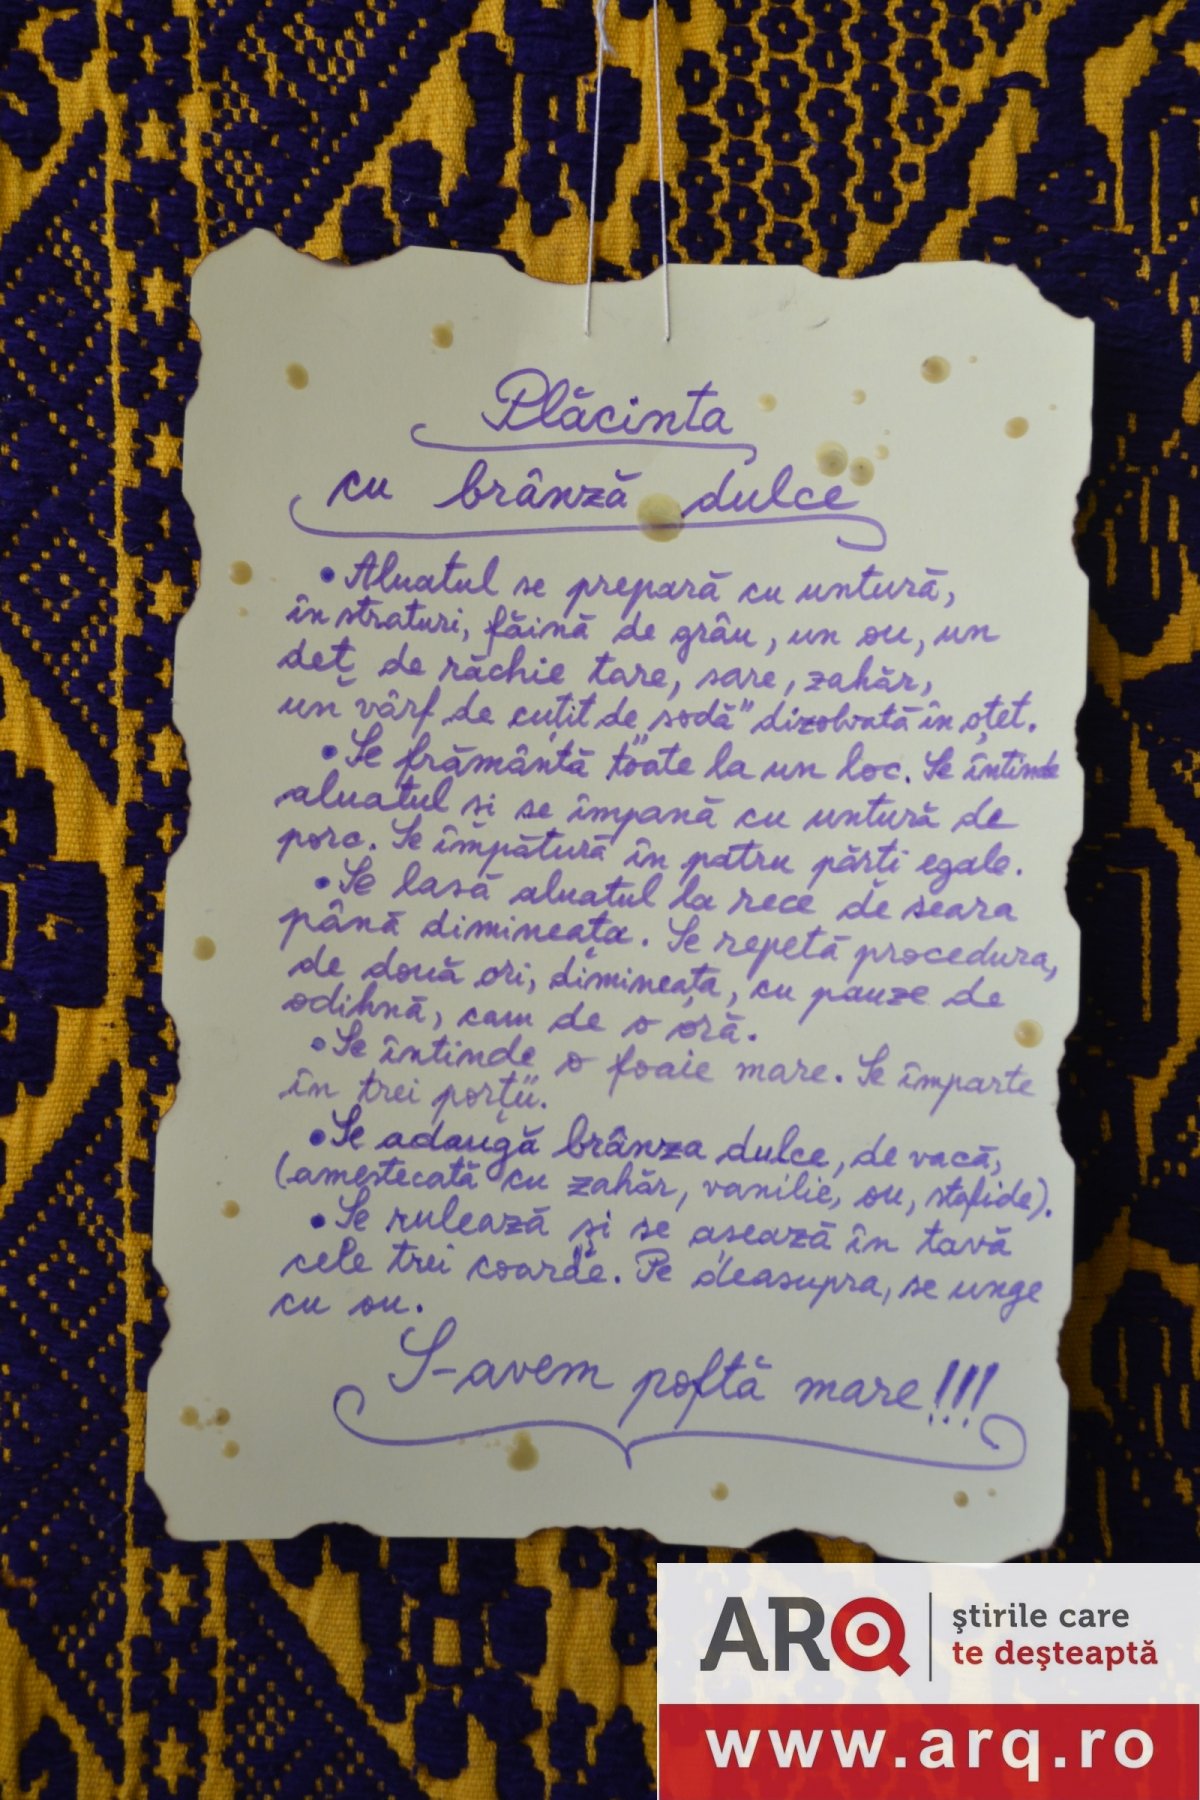 Plăcinta
cu brânză dulce
• Aluatul se prepară cu untură,
în straturi, făină de grâu, un ou, un
deț de răchie tare, sare, zahăr,
un „vârf de cuțit de sodă” dizolvată în oțet.
• Se frământă toate la un loc. Se întinde
aluatul si se împană cu untură de
porc. Se împătură în patru părti egale.
• Se lasă aluatul la rece de seara
până dimineața. Se repetă procedura,
de două ori, dimineața, cu pauze de
odihnă, cam de o oră.
• Se întinde o foaie mare. Se împarte
în trei porții.
• Se adaugă brânza dulce, de vacă,
(amestecată cu zahăr, vanilie, ou, stafide).
• Se rulează și se așează în tavă
cele trei „coarde”. Pe deasupra, se unge
cu ou.
S-avem poftă mare!!!
ARQ
știrile care
te deșteaptă
www.arq.ro